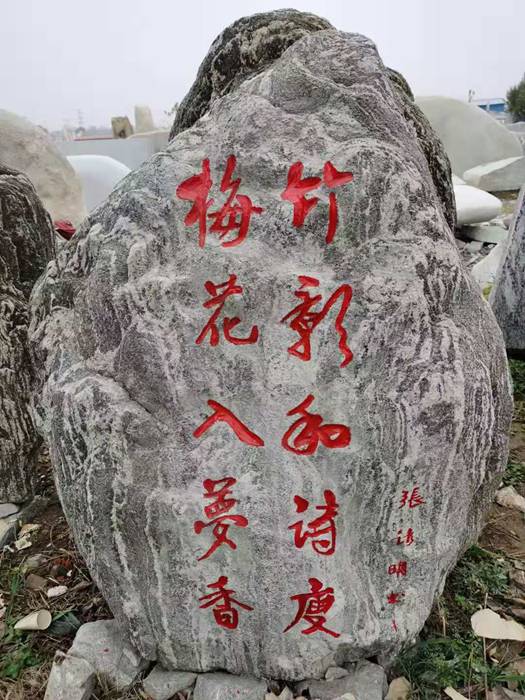 竹影和诗瘦
梅花入夢香
張诗明书